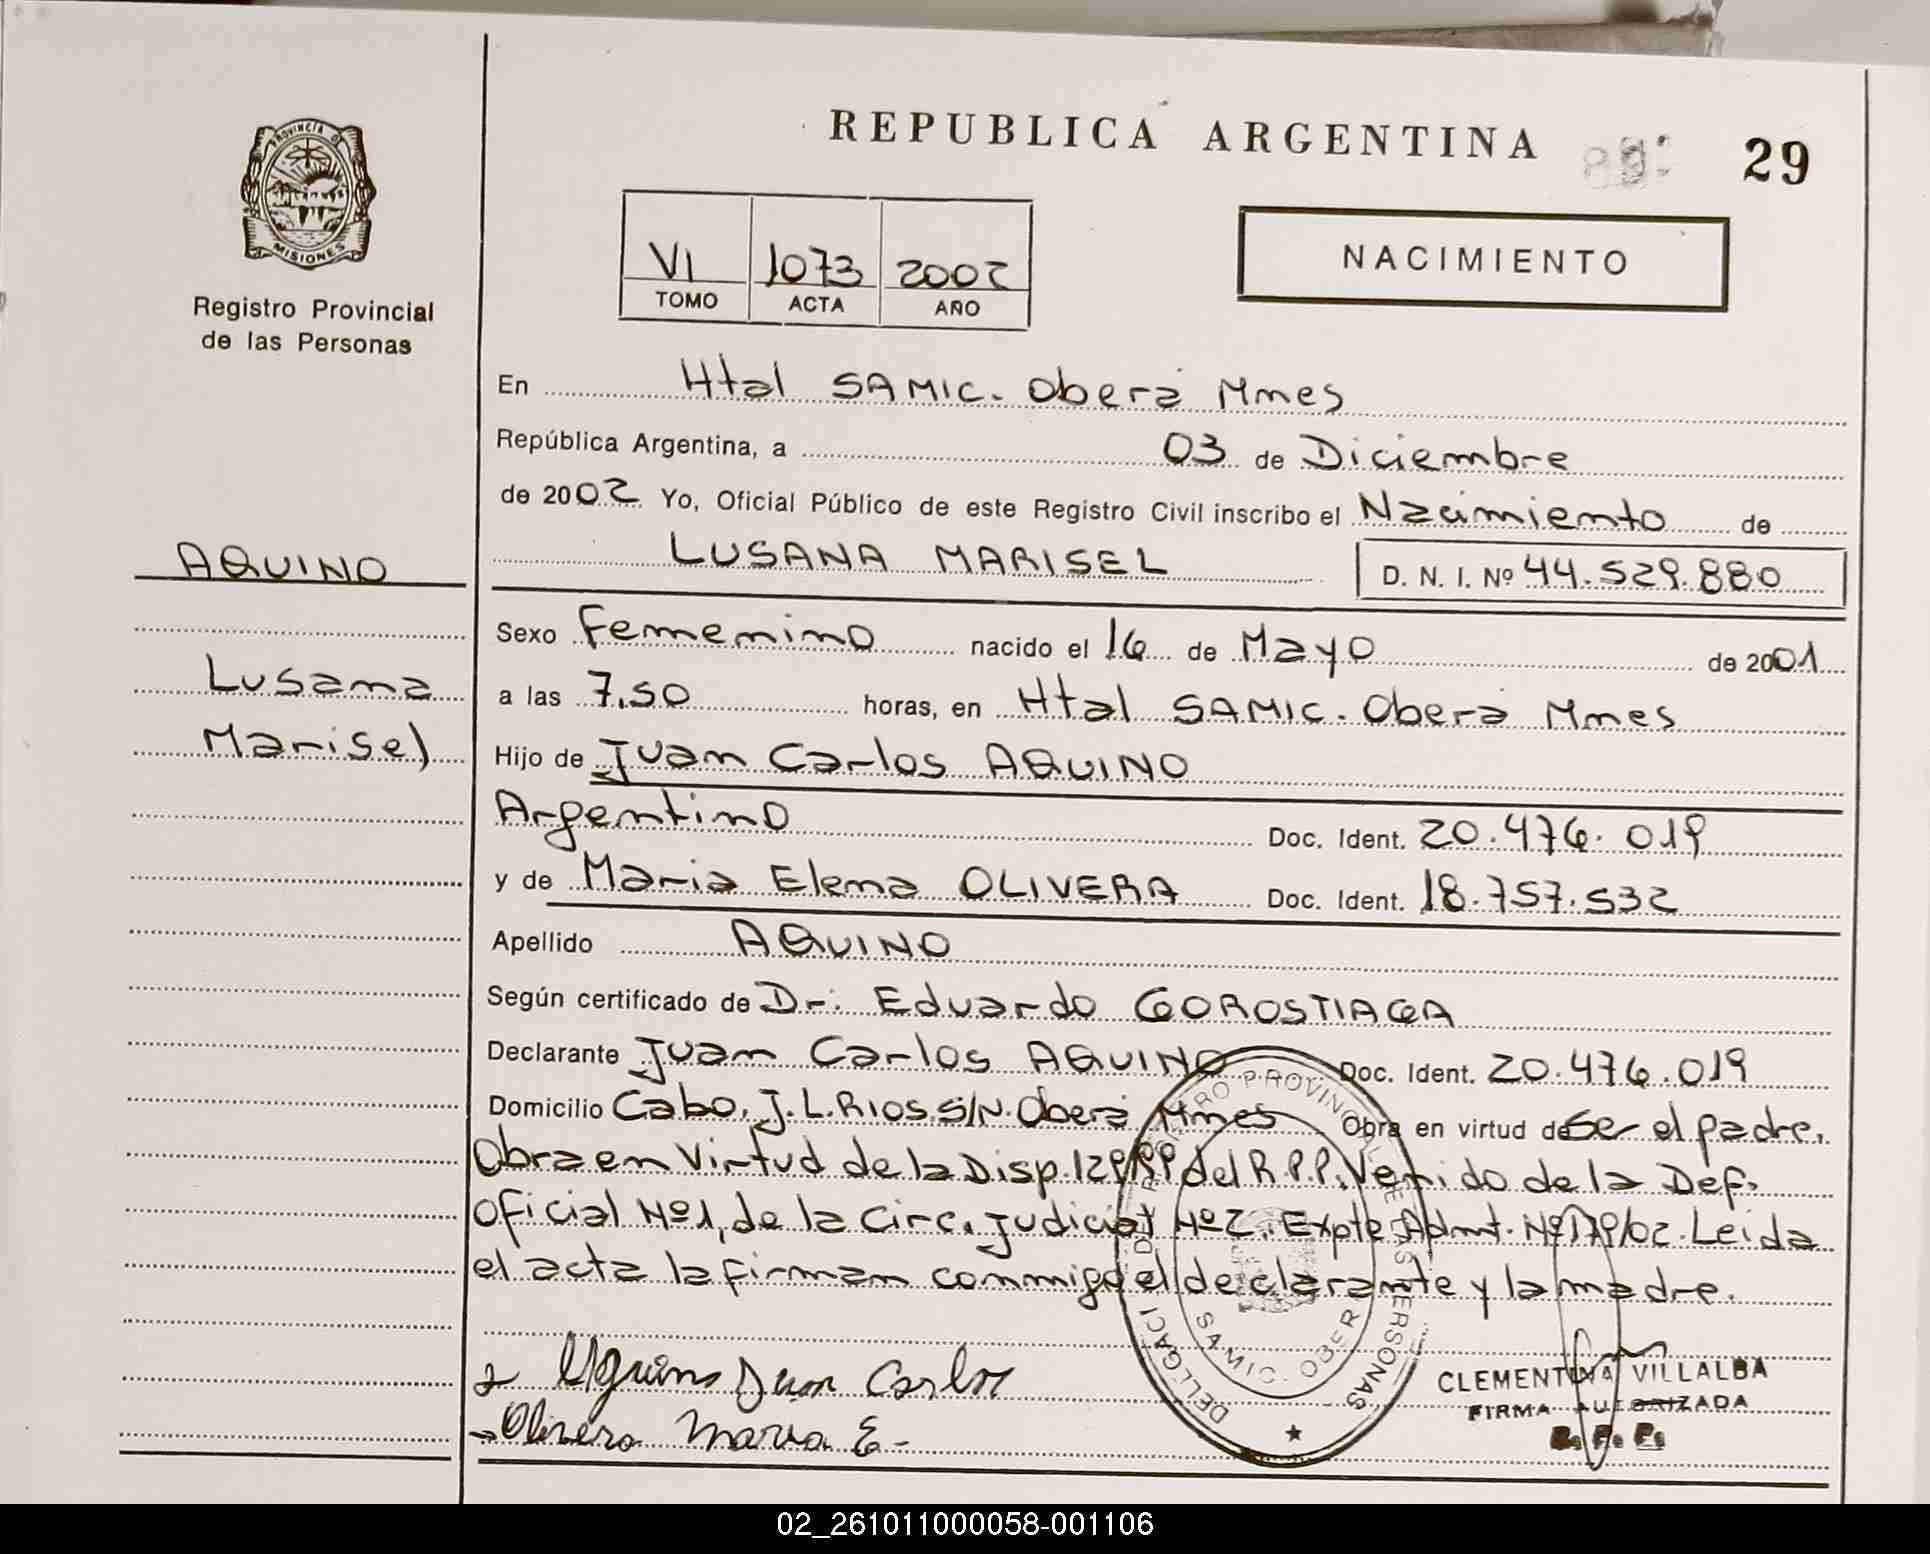 REPUBLICA ARGENTINA
29
PROVINCIA DE
MISIONES
Registro Provincial
de las Personas
VI 1073 2002
TOMO ACTA AÑO
NACIMIENTO
En Htal SAMIC. Oberá Mnes
República Argentina, a 03 de Diciembre
de 2002 Yo, Oficial Público de este Registro Civil inscribo el Nacimiento de
LUSANA MARISEL D. N. I. Nº 44.529.880
AQUINO
Lusana
Marisel
Sexo Femenino nacido el 16 de Mayo de 2001
a las 7,50 horas, en Htal SAMIC. Oberá Mnes
Hijo de Juan Carlos AQUINO
Argentino Doc. Ident. 20.476.019
y de Maria Elena OLIVERA Doc. Ident. 18.757.532
Apellido AQUINO
Según certificado de Dr. Eduardo GOROSTIAGA
Declarante Juan Carlos AQUINO Doc. Ident. 20.476.019
Domicilio Cabo. J.L.RIOS S/N. Oberá Mnes Obra en virtud de Ser el padre.
Obra en Virtud de la Disp. del R.P.P. Venido de la Def.
Oficial Nº1, de la Circ. Judicial Nº2. Expte Admt. Nº179/02. Leida
el acta la firman conmigo el declarante y la madre.
Aquino Juan Carlos
Olivera Maria E.
SAMIC. OBER
PERSONAS
CLEMENTINA VILLALBA
FIRMA AUTORIZADA
02_261011000058-001106